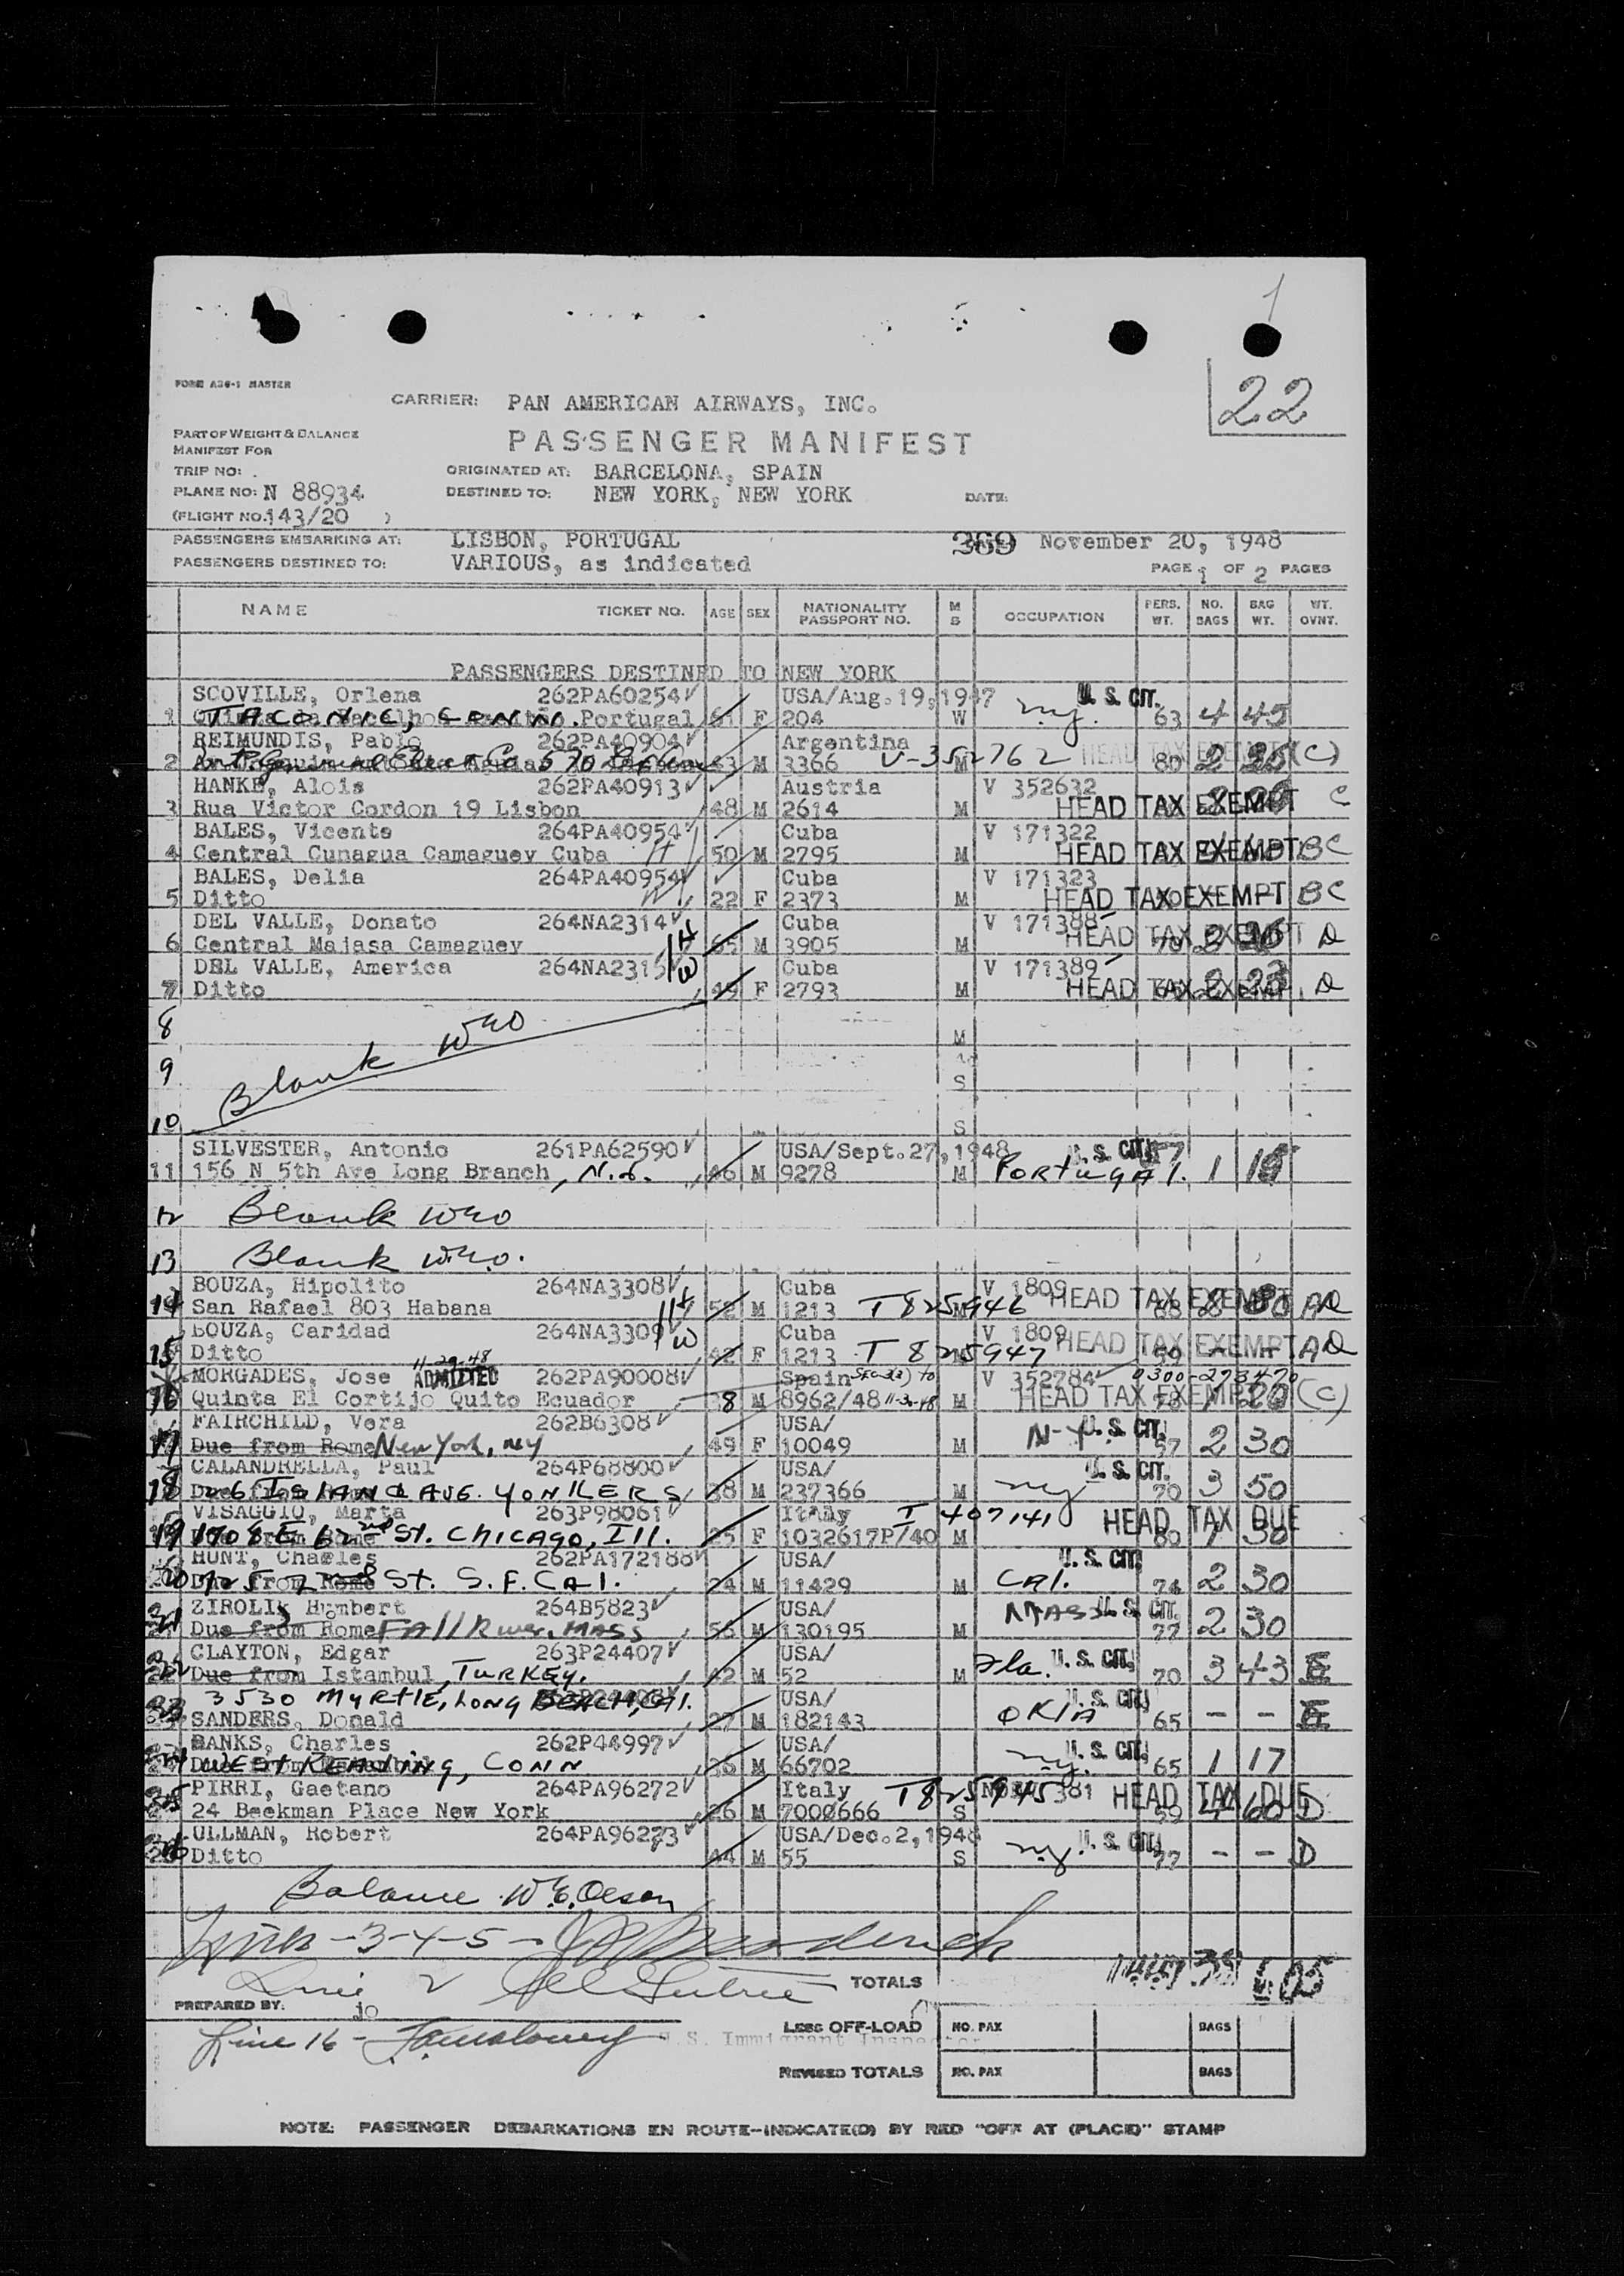 1
22
FORM A36-1 MASTER
CARRIER: PAN AMERICAN AIRWAYS, INC.
PART OF WEIGHT & BALANCE
MANIFEST FOR
PASSENGER MANIFEST
TRIP NO:
ORIGINATED AT: BARCELONA, SPAIN
PLANE NO: N 88934
DESTINED TO: NEW YORK, NEW YORK
DATE:
(FLIGHT NO. 143/20 )
PASSENGERS EMBARKING AT: LISBON, PORTUGAL
369 November 20, 1948
PASSENGERS DESTINED TO: VARIOUS, as indicated
PAGE 1 OF 2 PAGES
NAME TICKET NO. AGE SEX NATIONALITY PASSPORT NO. M S OCCUPATION PERS. WT. NO. BAGS BAG WT. WT. OVNT.
PASSENGERS DESTINED TO NEW YORK
SCOVILLE, Orlena 262PA60254 USA/Aug.19,1947 U. S. CIT.
1 TACONIC, CONN. Portugal 61 F 204 W N.Y. 63 4 45
REIMUNDIS, Pablo 262PA40904 Argentina HEAD TAX
2 43 M 3366 V-352762 M 80 2 25 (C)
HANKE, Alois 262PA40913 Austria V 352632
3 Rua Victor Cordon 19 Lisbon 48 M 2614 M HEAD TAX EXEMPT C
BALES, Vicente 264PA40954 Cuba V 171322
4 Central Cunagua Camaguey Cuba H 50 M 2795 M HEAD TAX EXEMPT BC
BALES, Delia 264PA40954 Cuba V 171323
5 Ditto W 22 F 2373 M HEAD TAX EXEMPT BC
DEL VALLE, Donato 264NA2314 Cuba V 171388
6 Central Majasa Camaguey H 65 M 3905 M HEAD TAX EXEMPT D
DEL VALLE, America 264NA2315 Cuba V 171389
7 Ditto W 49 F 2793 M HEAD TAX EXEMPT D
8 M
9 Blank WEO S
10 S
SILVESTER, Antonio 261PA62590 USA/Sept.27,1948 U. S. CIT. 57
11 156 N 5th Ave Long Branch, N.J. 46 M 9278 M PORTUGAL. 1 15
12 Blank WEO
13 Blank W.E.O.
BOUZA, Hipolito 264NA3308 Cuba V 1809
14 San Rafael 803 Habana H 52 M 1213 T 825946 M HEAD TAX EXEMPT AD
BOUZA, Caridad 264NA3309 Cuba V 1809
15 Ditto W 42 F 1213 T 825947 HEAD TAX EXEMPT AD
MORGADES, Jose 11-29-48 ADMITTED 262PA90008 Spain V 352784 0300-273470
16 Quinta El Cortijo Quito Ecuador 38 M 8962/48 M HEAD TAX EXEMPT 20 (C)
FAIRCHILD, Vera 262B6308 USA/ U. S. CIT.
17 Due from Rome New York, NY 49 F 10049 M N-Y 57 2 30
CALANDRELLA, Paul 264P68800 USA/ U. S. CIT.
18 26 ISLAND AVE. YONKERS 38 M 237366 M NY 70 3 50
VISAGGIO, Marta 263P98061 Italy I 407141 HEAD TAX DUE
19 1708 E 62nd St. Chicago, Ill. 25 F 1032617P/40 M 80 1 30
HUNT, Charles 262PA172188 USA/ U. S. CIT.
20 St. S. F. CAl. 24 M 11429 M CAl. 74 2 30
ZIROLI, Humbert 264B5823 USA/ MASS U. S. CIT.
21 Due from Rome FAll River, MASS 56 M 130195 M 77 2 30
CLAYTON, Edgar 263P24407 USA/ U. S. CIT.
22 Due from Istambul, TURKEY. 42 M 52 M Fla. 70 3 43 E
3530 MYRTLE, LONG BEACH, CAl. USA/ U. S. CIT.
23 SANDERS, Donald 27 M 182143 OKlA 65 - - E
BANKS, Charles 262P44997 USA/ U. S. CIT.
24 WEST READING, CONN 36 M 66702 N.Y. 65 1 17
PIRRI, Gaetano 264PA96272 Italy T825945 HEAD TAX DUE
25 24 Beekman Place New York 26 M 7000666 S 59 4 60 D
ULLMAN, Robert 264PA96273 USA/Dec.2,1948 U. S. CIT.
26 Ditto 44 M 55 S N.Y. 77 - - D
Balance W.E. Olson
Lines-3-4-5-
Line 2 TOTALS 38 605
PREPARED BY: jo
Line 16- U.S. Immigrant Inspector
LESS OFF-LOAD NO. PAX BAGS
REVISED TOTALS NO. PAX BAGS
NOTE: PASSENGER DEBARKATIONS EN ROUTE--INDICATE(D) BY RED "OFF AT (PLACE)" STAMP